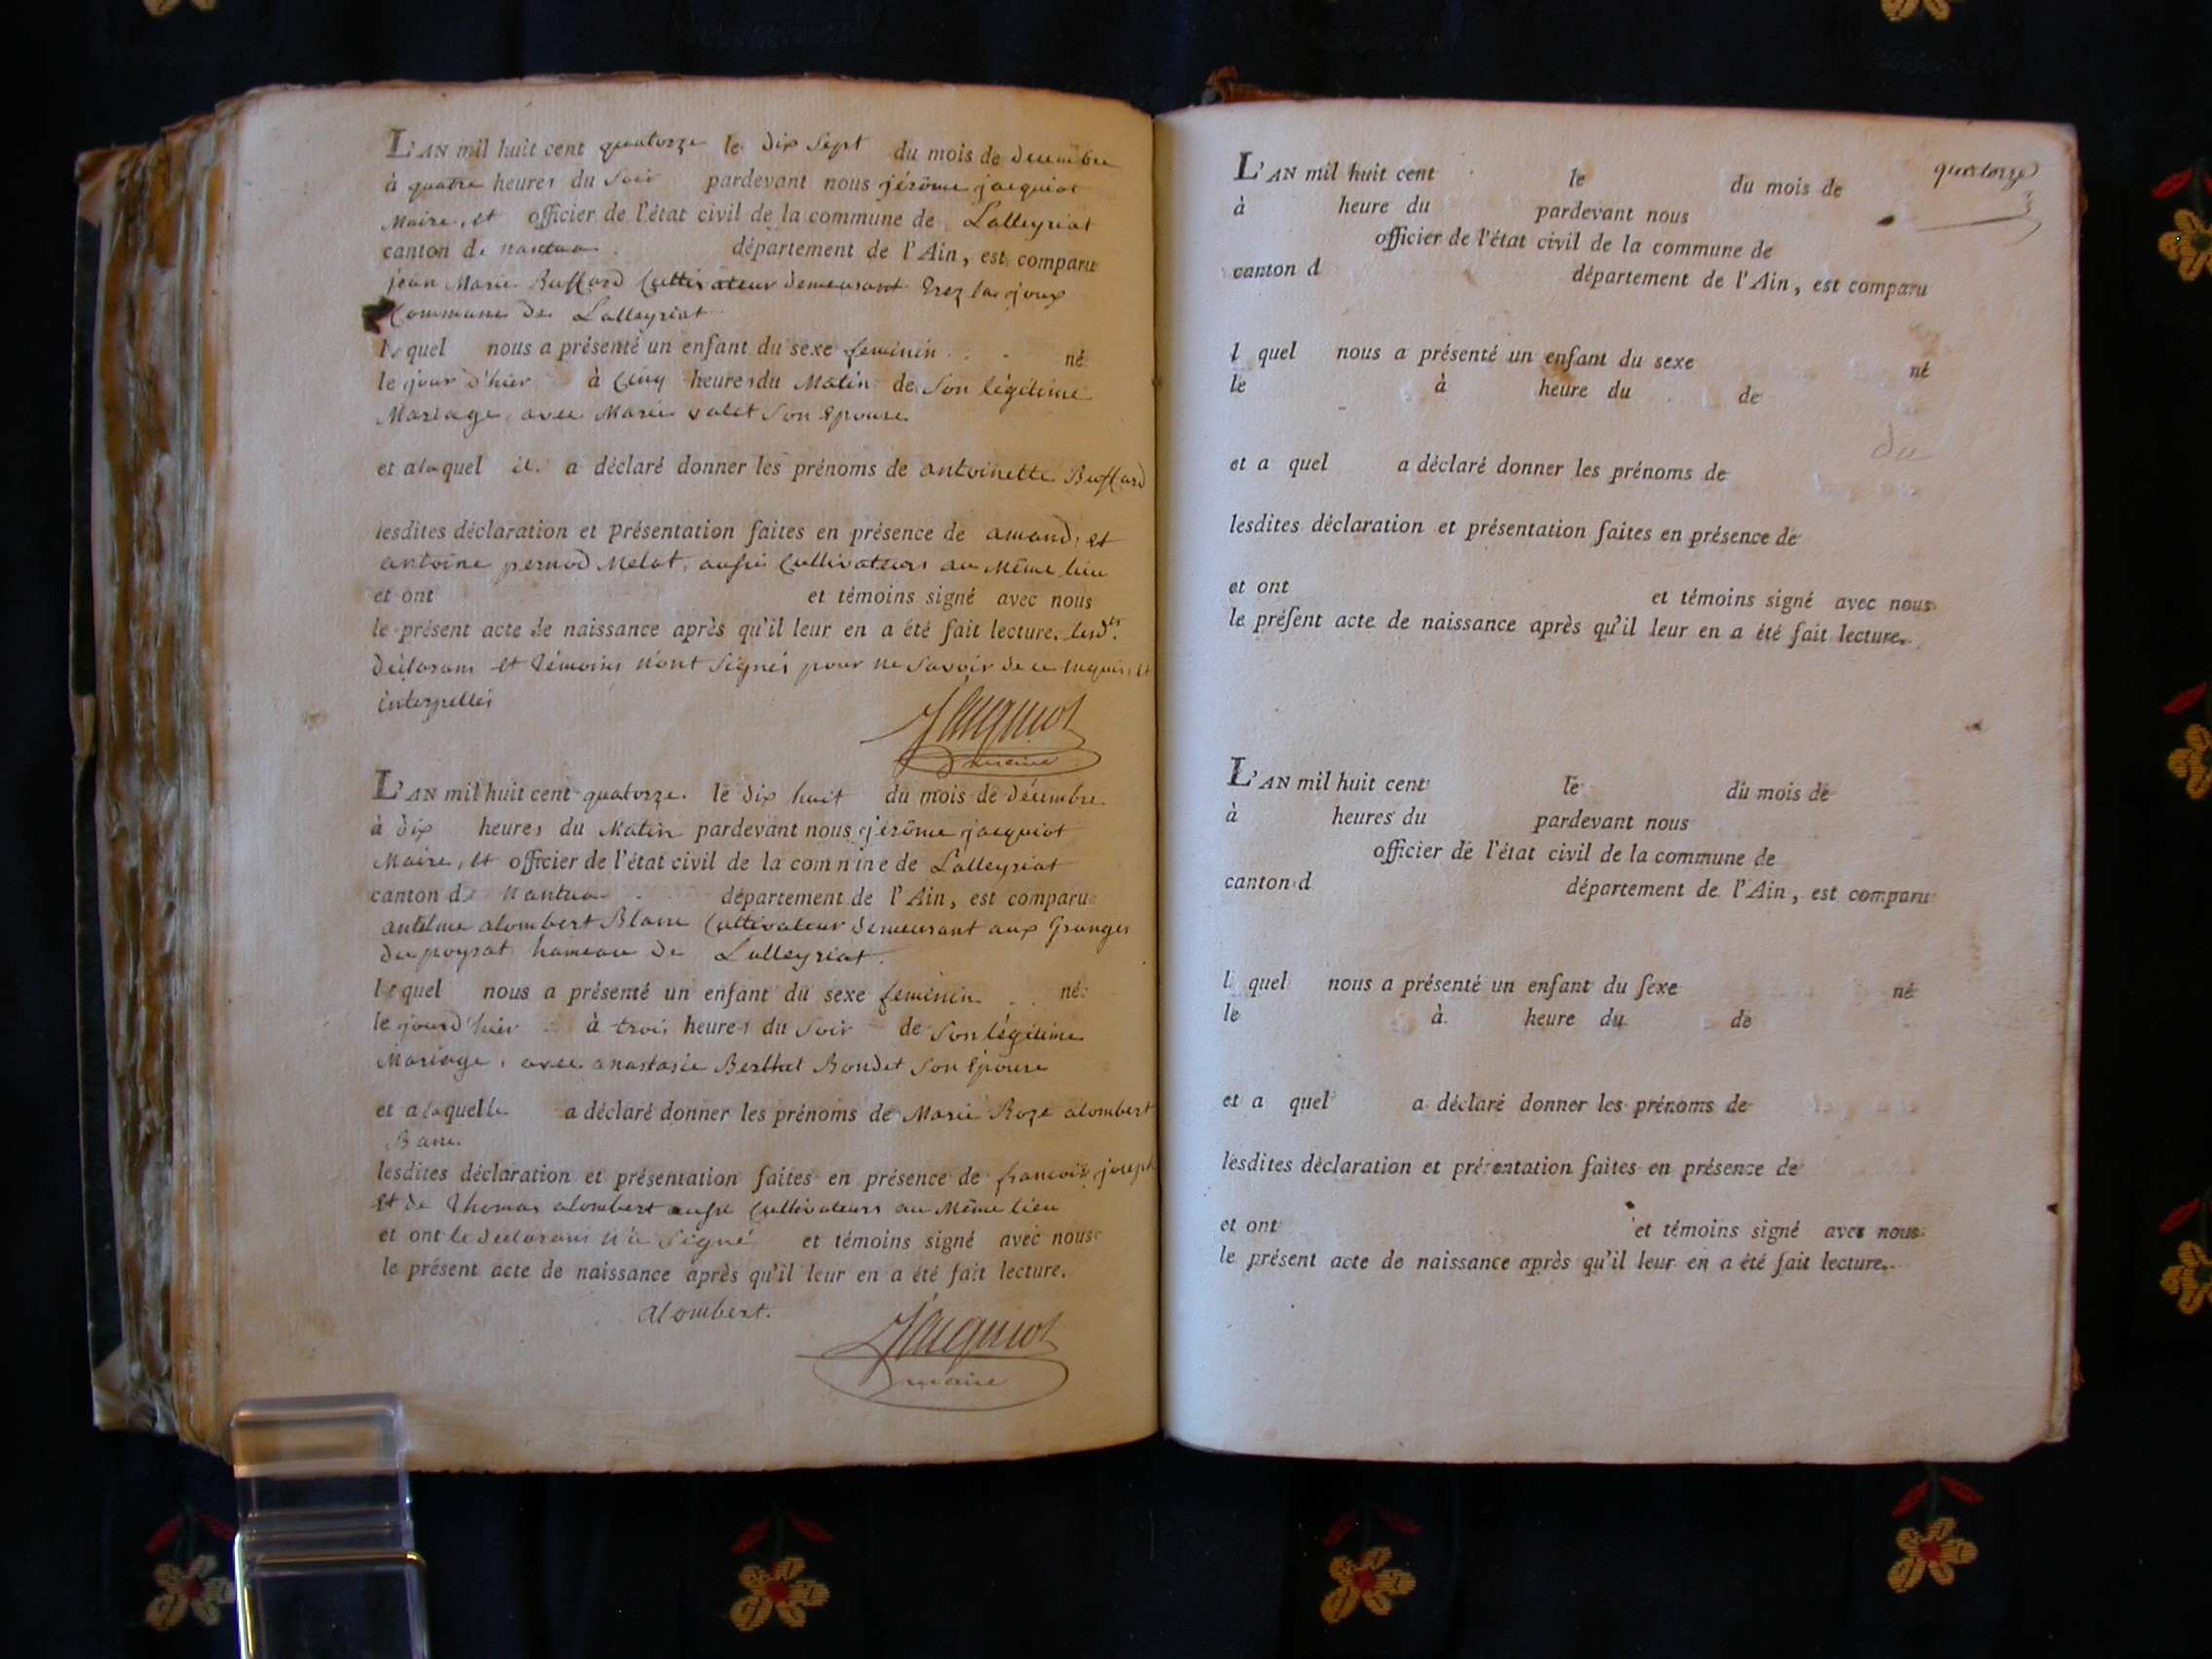 L'AN mil huit cent quatorze le dix Sept du mois de decembre
à quatre heures du Soir pardevant nous jérôme jacquiot
Maire, et officier de l'état civil de la commune de Lalleyriat
canton de nantua département de l'Ain, est comparu
jean Marie Buffard Cultivateur demeurant la joux
Commune De Lalleyriat
lequel nous a présenté un enfant du sexe feminin né
le jour d'hier à Cinq heures du Matin de Son légitime
Mariage, avec Marie valet Son Epouse
et a laquel il a déclaré donner les prénoms de antoinette Buffard
lesdites déclaration et présentation faites en présence de amand, et
antoine pernod Melat, aussi Cultivateurs au Même lieu
et ont et témoins signé avec nous
le présent acte de naissance après qu'il leur en a été fait lecture. lesdts.
Déclarans et témoins n'ont Signés pour ne Savoir de ce enquis, et
interpellés
Jacquiot
maire
L'AN mil huit cent quatorze. le dix huit du mois de décembre
à dix heures du Matin pardevant nous jérôme jacquiot
Maire, et officier de l'état civil de la commune de Lalleyriat
canton de Nantua département de l'Ain, est comparu
antelme alombert Blanc Cultivateur demeurant aux Granges
du poysat hameau De Lalleyriat.
lequel nous a présenté un enfant du sexe feminin né
le jourd'hier à trois heures du Soir de Son légitime
Mariage, avec anastasie Berthet Bondet Son Epouse
et a laquelle a déclaré donner les prénoms de Marie Roze alombert
Banc.
lesdites déclaration et présentation faites en présence de francois joseph
et de Thomas alombert aussi Cultivateurs au Même lieu
et ont le declarant n'a Signé et témoins signé avec nous
le présent acte de naissance après qu'il leur en a été fait lecture.
alombert.
Jacquiot
maire
quatorze
L'AN mil huit cent le du mois de
à heure du pardevant nous
officier de l'état civil de la commune de
canton d département de l'Ain, est comparu
l quel nous a présenté un enfant du sexe né
le à heure du de
du
et a quel a déclaré donner les prénoms de
lesdites déclaration et présentation faites en présence de
et ont et témoins signé avec nous
le préſent acte de naissance après qu'il leur en a été fait lecture.
L'AN mil huit cent le du mois de
à heures du pardevant nous
officier de l'état civil de la commune de
canton d département de l'Ain, est comparu
l quel nous a présenté un enfant du ſexe né
le à heure du de
et a quel a déclaré donner les prénoms de
lesdites déclaration et présentation faites en présence de
et ont et témoins signé avec nous
le présent acte de naissance après qu'il leur en a été fait lecture.